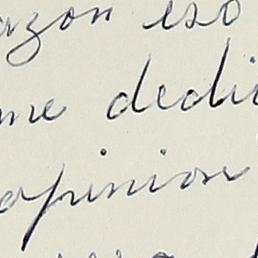 azon eso
me dedi
opinion